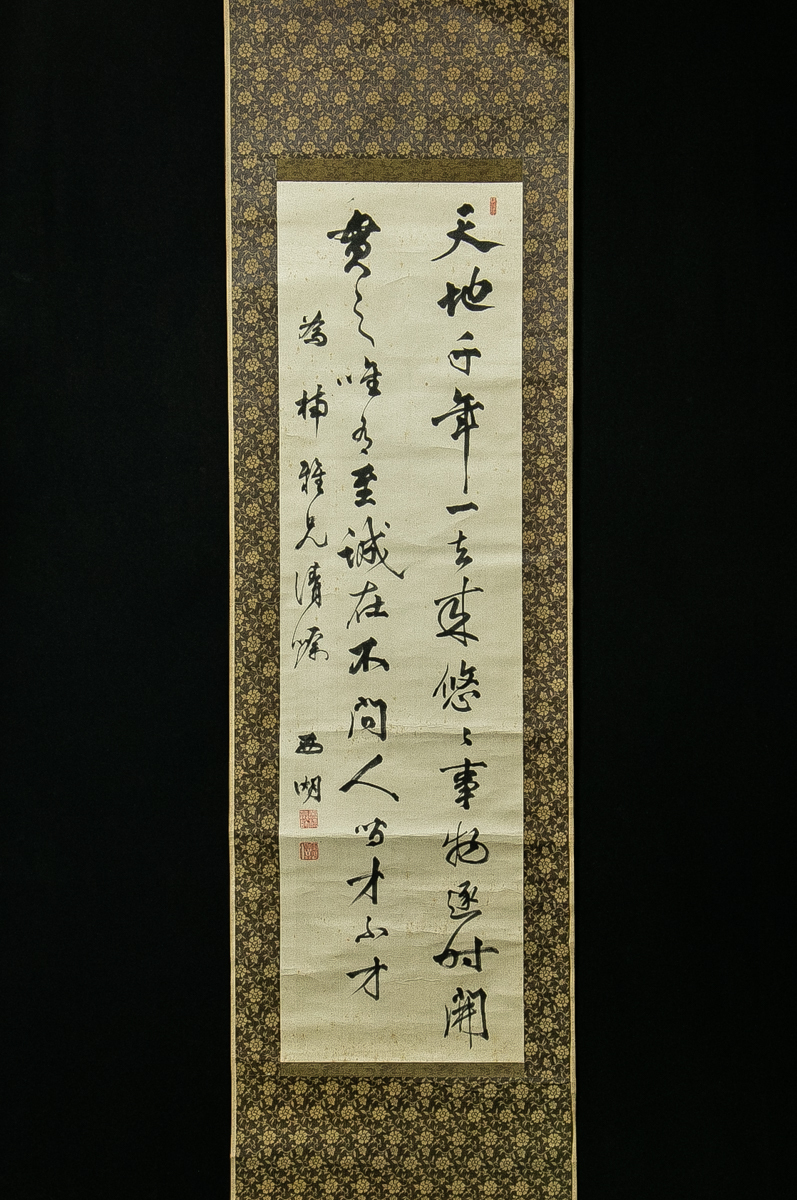 天地千年一去来悠々事物逐时開
貫之唯有至誠在不問人間才不才
為楠雅兄清嘱
西湖